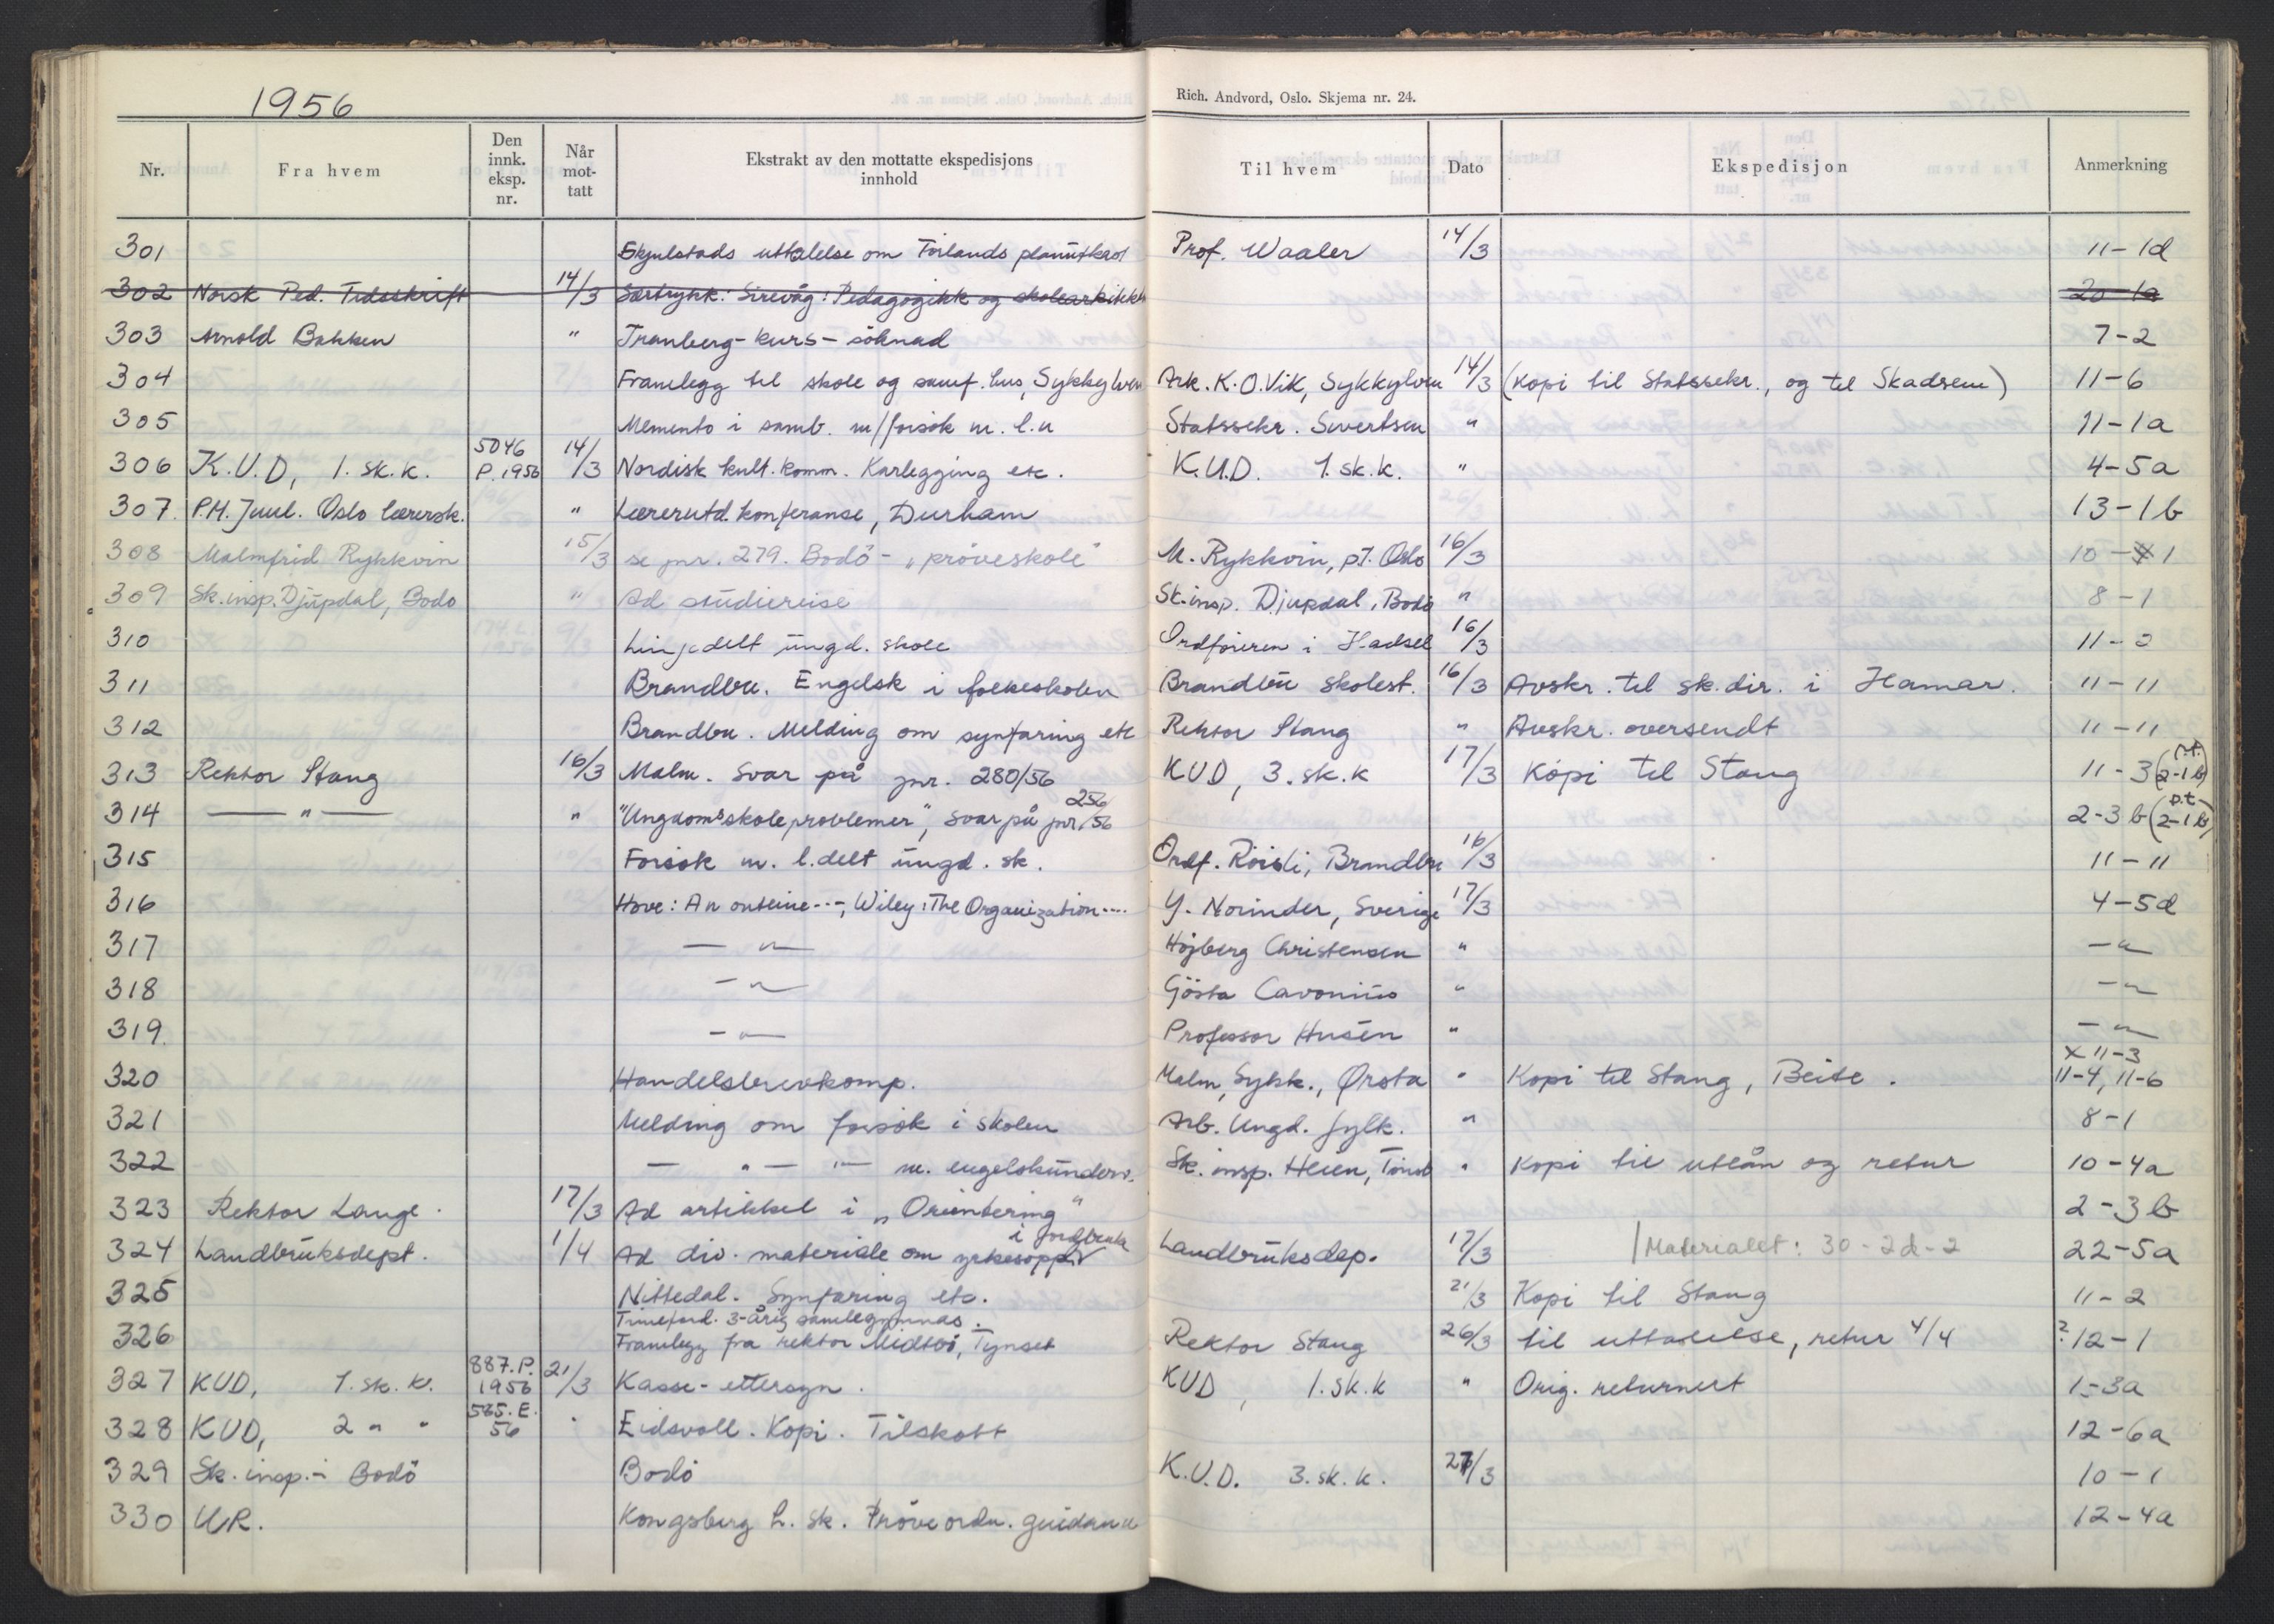 1956
Rich. Andvord, Oslo. Skjema nr. 24.
Nr. Fra hvem Den innk. eksp. nr. Når mot-tatt Ekstrakt av den mottatte ekspedisjons innhold Til hvem Dato Ekspedisjon Anmerkning
301 Skjulstads uttalelse om Forlands planutkast Prof. Waaler 14/3 11-1d
302 Norsk Ped. Tidsskrift 14/3 Særtrykk: Sirevåg: Pedagogikk og skolearkitekt 20-1a
303 Arnold Bakken " Tranberg-kurs - söknad 7-2
304 Framlegg til skole og samf. hus, Sykkylven Ark. K.O. Vik, Sykkylven 14/3 (Kopi til Statssekr., og til Skadsem) 11-6
305 Memento i samb. m/forsøk m. l.u Statssekr. Sivertsen " 11-1a
306 K.U.D, 1. sk.k. 5046 P. 1956 14/3 Nordisk kult. komm. Karlegging etc. K.U.D. 1. sk.k. " 4-5a
307 P.M. Juul. Oslo lærersk. " Lærerutd. konferanse, Durham 13-1b
308 Malmfrid Rykkvin 15/3 se jnr. 279. Bodö - "pröveskole" M. Rykkvin, p.t. Oslo 16/3 10-1
309 Sk.insp. Djupdal, Bodo " Ad studiereise Sk.insp. Djupdal, Bodö " 8-1
310 Linjedelt ungd. skole Ordföreren i Hadsel 16/3 11-2
311 Brandbu. Engelsk i folkeskolen Brandbu skolest. 16/3 Avskr. til sk.dir. i Hamar. 11-11
312 Brandbu. Melding om synfaring etc Rektor Stang " Avskr. oversendt 11-11
313 Rektor Stang 16/3 Malm. Svar på jnr. 280/56 KUD, 3. sk.k 17/3 Kopi til Stang 11-3 (p.t. 2-1b)
314 — " — " "Ungdomsskoleproblemer", svar på jnr. 256/56 2-3b (p.t. 2-1b)
315 Forsök m. l.delt ungd. sk. Ordf. Röisli, Brandbu 16/3 11-11
316 Hove: An outline ---, Wiley: The Organization .... Y. Norinder, Sverige 17/3 4-5d
317 — " — Højberg Christensen " — " —
318 — " — Gösta Cavonius " — " —
319 — " — Professor Husén " — " —
320 Handelsbrevkomp. Malm, Sykk., Ørsta " Kopi til Stang, Beite. x 11-3 11-4, 11-6
321 Melding om forsök i skolen Arb. Ungd. fylk. " 8-1
322 — " — " — m. engelskunderv. Sk. insp. Heien, " Kopi til utlån og retur 10-4a
323 Rektor Lange. 17/3 Ad artikkel i "Orientering" 2-3b
324 Landbruksdept. 1/4 Ad div. materiale om yrkesoppl. i jordbruk Landbruksdep. 17/3 Materialet: 30-2d-2 22-5a
325 Nittedal. Synfaring etc. 21/3 Kopi til Stang 11-2
326 3-årig samlegymnas. Framlegg fra rektor Midtbö, Tynset Rektor Stang 26/3 til uttalelse, retur 4/4 ? 12-1
327 KUD, 1. sk. k. 887. P. 1956 21/3 Kasse-ettersyn. KUD, 1. sk.k " Orig. returnert 1-3a
328 KUD, 2 " " 565. E. 56 " Eidsvoll. Kopi. Tilskott 12-6a
329 Sk. insp. i Bodö Bodö K.U.D. 3. sk. k. 27/3 10-1
330 UR. Kongsberg h. sk. Pröveordn. guidance 12-4a